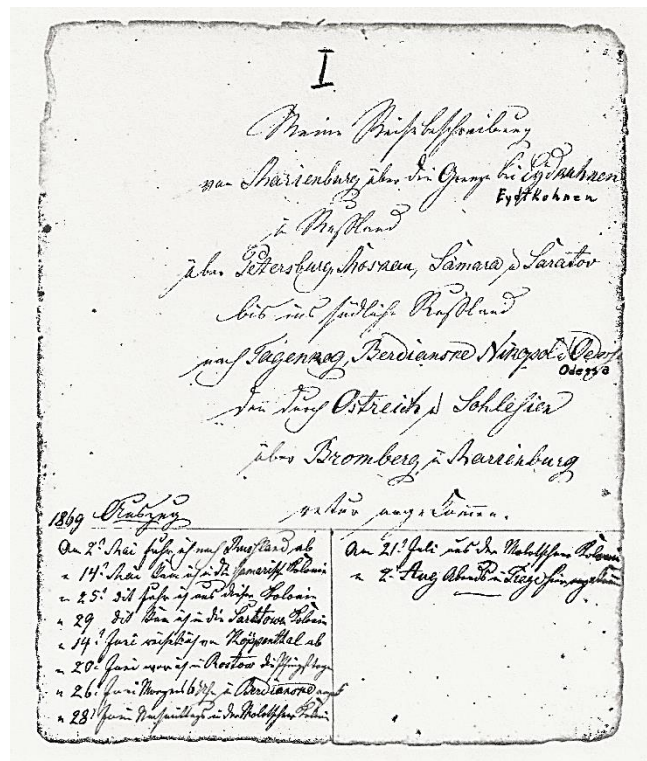 I
Meine Reisebeschreibung
von Marienburg über die Grenze bei Eydkuhnen
Eydtkohnen
in Rußland
über Petersburg, Moskau, Samara u Saratov
bis ins südliche Rußland
nach Tagenrog, Berdianske Nikopol u Odessa
Odessa
dan durch Ostreich u Schlesien
über Bromberg in Marienburg
retur angekommen.
1869 Auszug
Am 2t Mai fuhr ich nach Rußland ab
" 14t Mai kam ich in die Samarische Kolonie
" 25t dit fuhr ich aus dieser Kolonie
" 29 dit kam ich in die Saratower Kolonie
" 14t Juni reiste ich von Köppenthal ab
" 20t Juni war ich in Rostow die Pfingsttage
" 26t Juni Morgens 6 Uhr in Berdianske
" 28t Juni Nachmittags in der Molotschner Kolonie
Am 21t Juli aus der Molotschner Kolonie
" 2t Aug Abends in